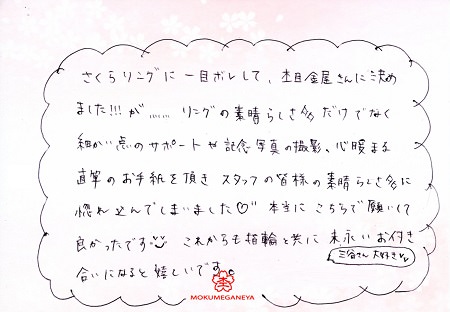 さくらリングに一目ボレして、杢目金屋さんに決め
ました!!! が…… リングの素晴らしさだけでなく
細かい点のサポートや記念写真の撮影、心暖まる
直筆のお手紙を頂き スタッフの皆様の素晴らしさに
惚れ込んでしまいました♡ 本当にこちらで願いして
良かったです これからも指輪と共に 末永いお付き
合いになると嬉しいです。
三谷さん 大好き♡
MOKUMEGANEYA